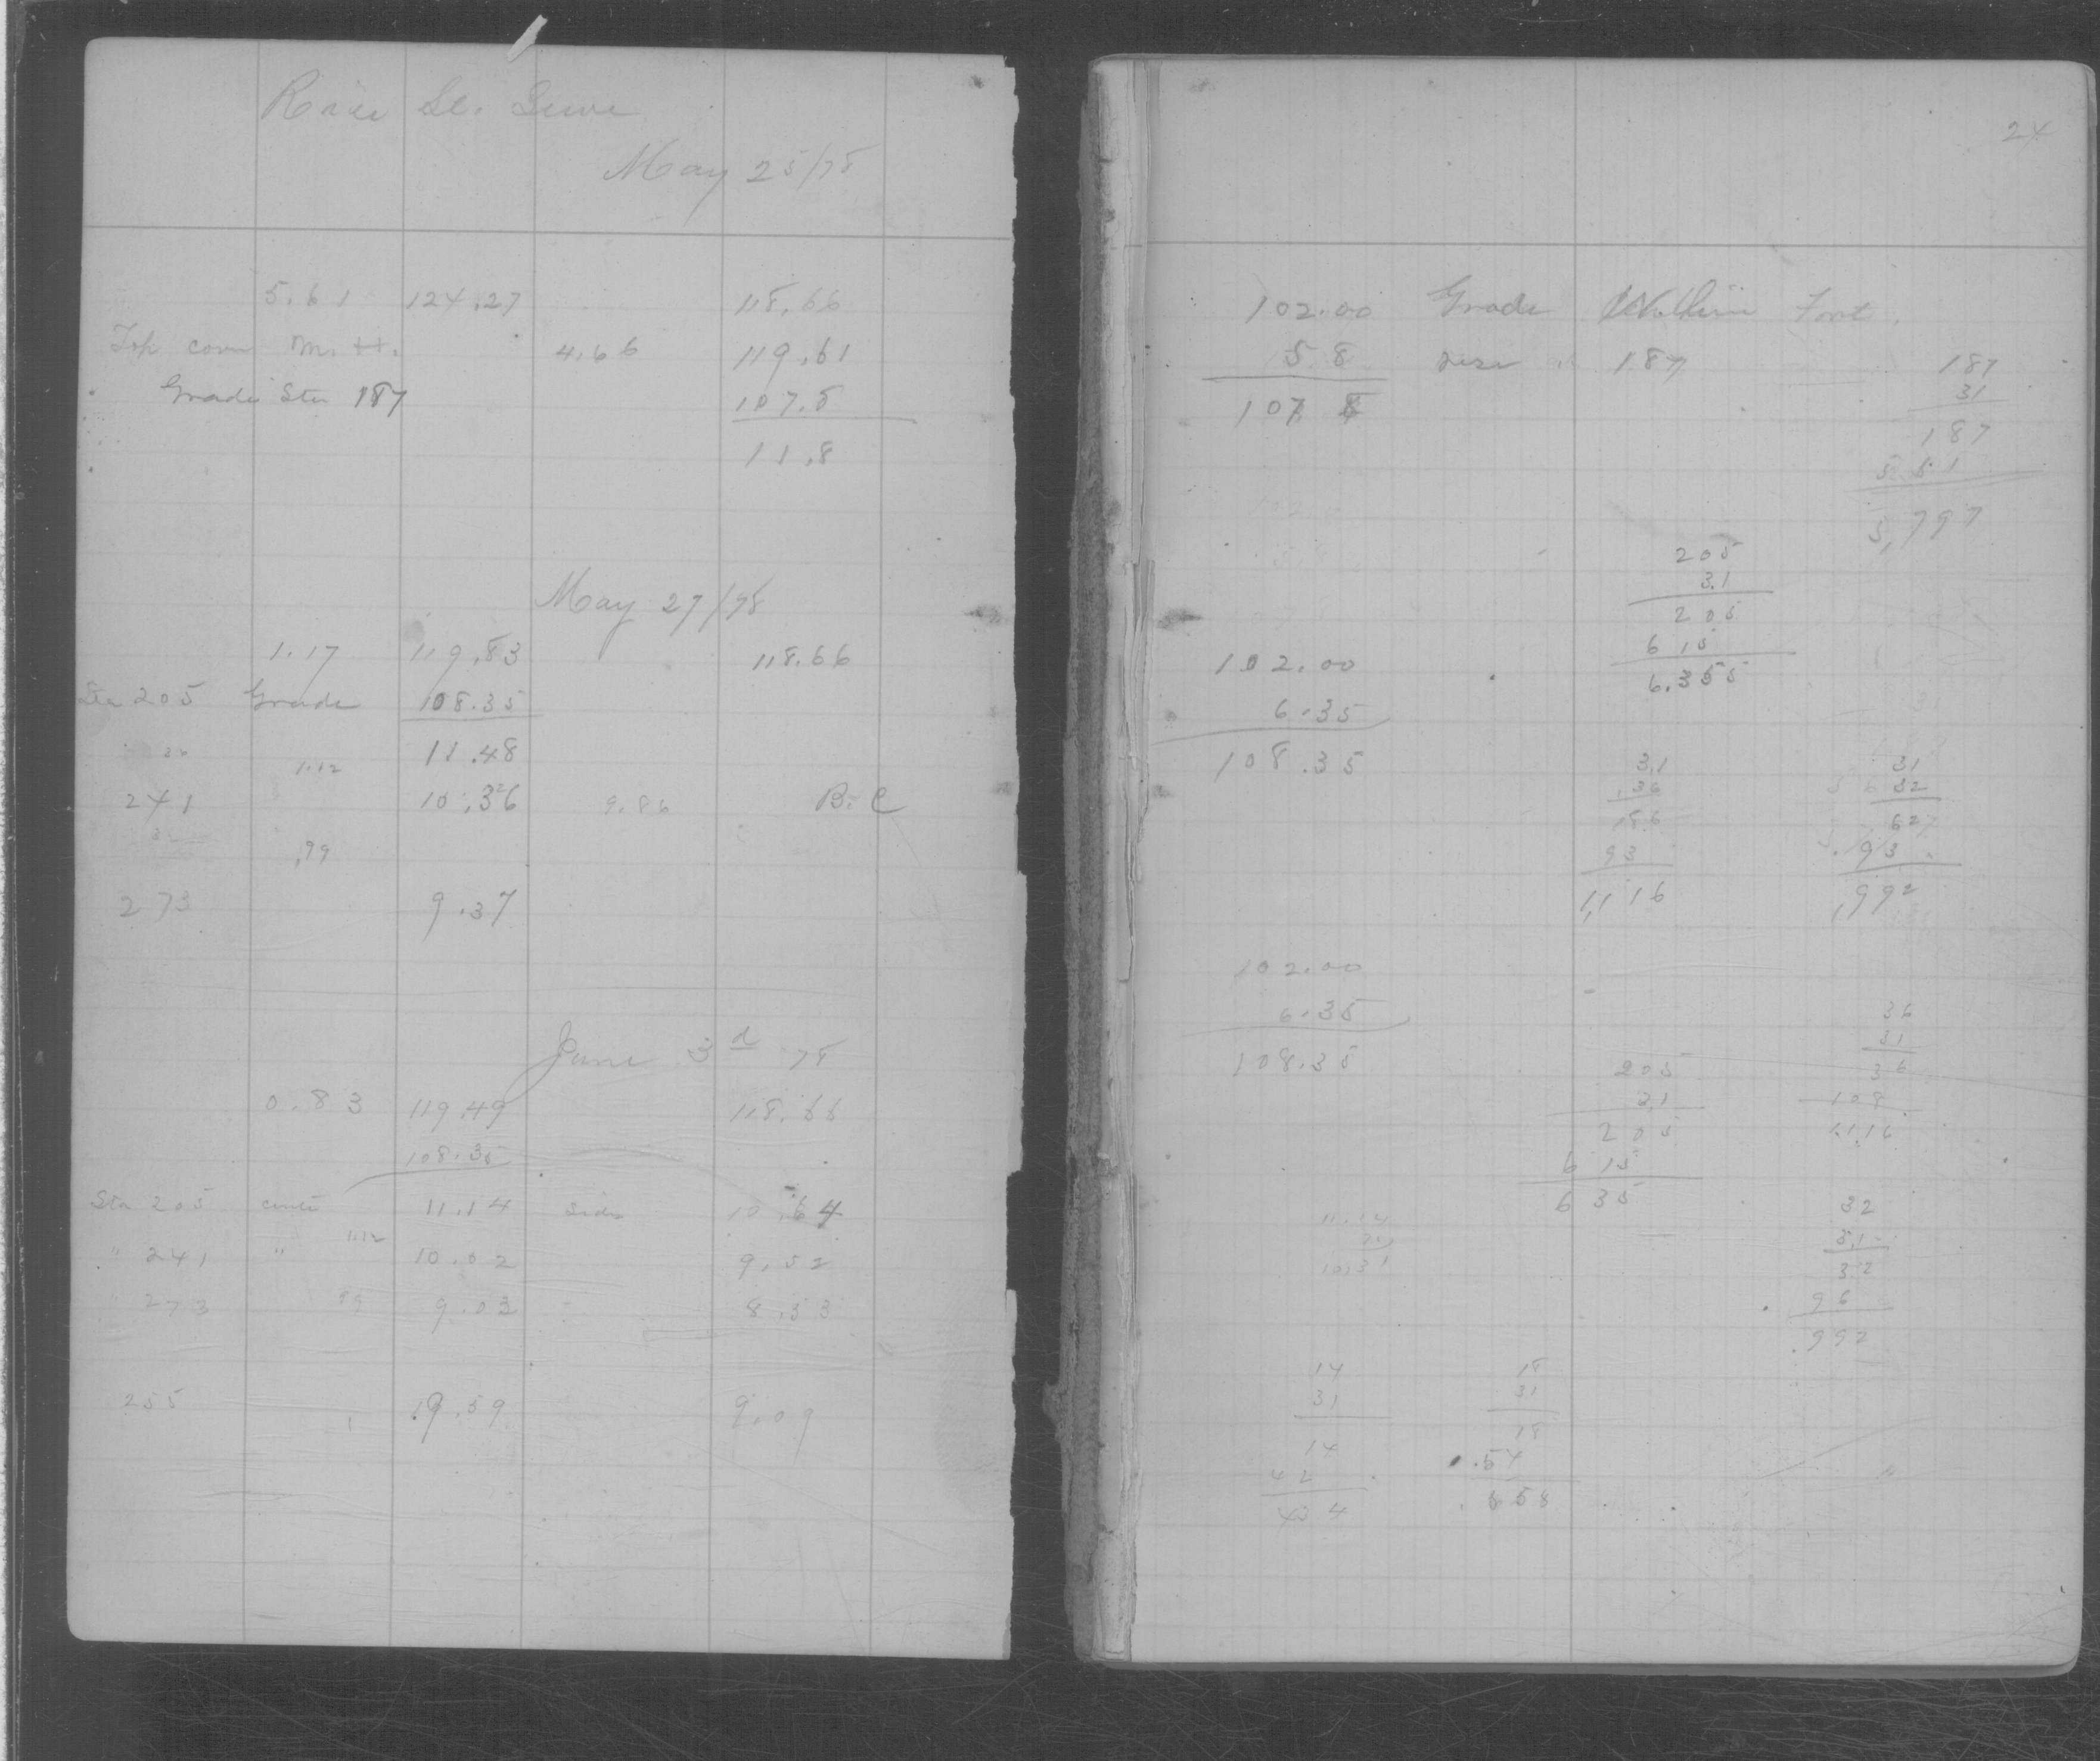 May 25/78
5.61 124.27 118.66
Top cover M. H. 4.66 119.61
Grade Sta 187 107.8
11.8
May 27/78
1.17 119.83 118.66
Sta 205 Grade 108.35
11.48
1.12
241 10.36 9.86 B. C
.99
273 9.37
June 3d 78
0.83 119.49 118.66
108.35
Sta 205 center 11.14 side 10.64
1.12
" 241 " 10.02 9.52
" 273 99 9.03 8.53
255 9.59 9.09
24
102.00 Grade Foot
5.8 rise 187
107 8
187
31
187
5 61
5,797
205
3.1
205
6 15
6.355
102.00
6.35
108.35
3.1
.36
186
93
1,116
31
32
62
93
,992
102.00
6.35
108.35
36
31
36
108
1.116
205
31
205
6 15
6 35
11.14
10.31
32
3.1
32
96
.992
14
31
14
42
434
18
31
18
.54
.558